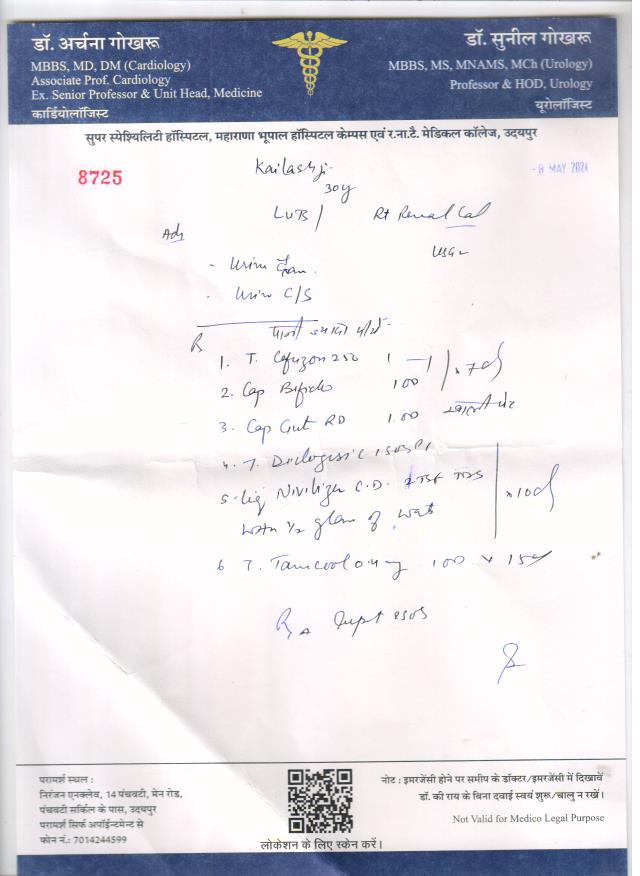 डॉ. अर्चना गोखरू
MBBS, MD, DM (Cardiology)
Associate Prof. Cardiology
Ex. Senior Professor & Unit Head, Medicine
कार्डियोलॉजिस्ट
डॉ. सुनील गोखरू
MBBS, MS, MNAMS, MCh (Urology)
Professor & HOD, Urology
यूरोलॉजिस्ट
सुपर स्पेश्यिलिटी हॉस्पिटल, महाराणा भूपाल हॉस्पिटल केम्पस एवं र.ना.टै. मेडिकल कॉलेज, उदयपुर
8725
Kailash ji
- 8 MAY 2024
30y
Rt Renal Cal
Adv
USG
- Urine
- Urine C/S
R
पानी ज्यादा पीवें
1. T. 250 1 — 1 x 7d
2. Cap 100
3. Cap Gut RD 1.00 खाली पेट
4. T.
5. Liq C.D. TDS
with 1/2 glass of x 10d
6 T. 0.4 mg 100 x 15d
R
परामर्श स्थल :
निरंजन एनक्लेव, 14 पंचवटी, मेन रोड,
पंचवटी सर्किल के पास, उदयपुर
परामर्श सिर्फ अपॉईन्टमेन्ट से
फोन नं.: 7014244599
लोकेशन के लिए स्केन करें।
नोट : इमरजेंसी होने पर समीप के डॉक्टर/इमरजेंसी में दिखावें
डॉ. की राय के बिना दवाई स्वयं शुरू/चालु न रखें।
Not Valid for Medico Legal Purpose